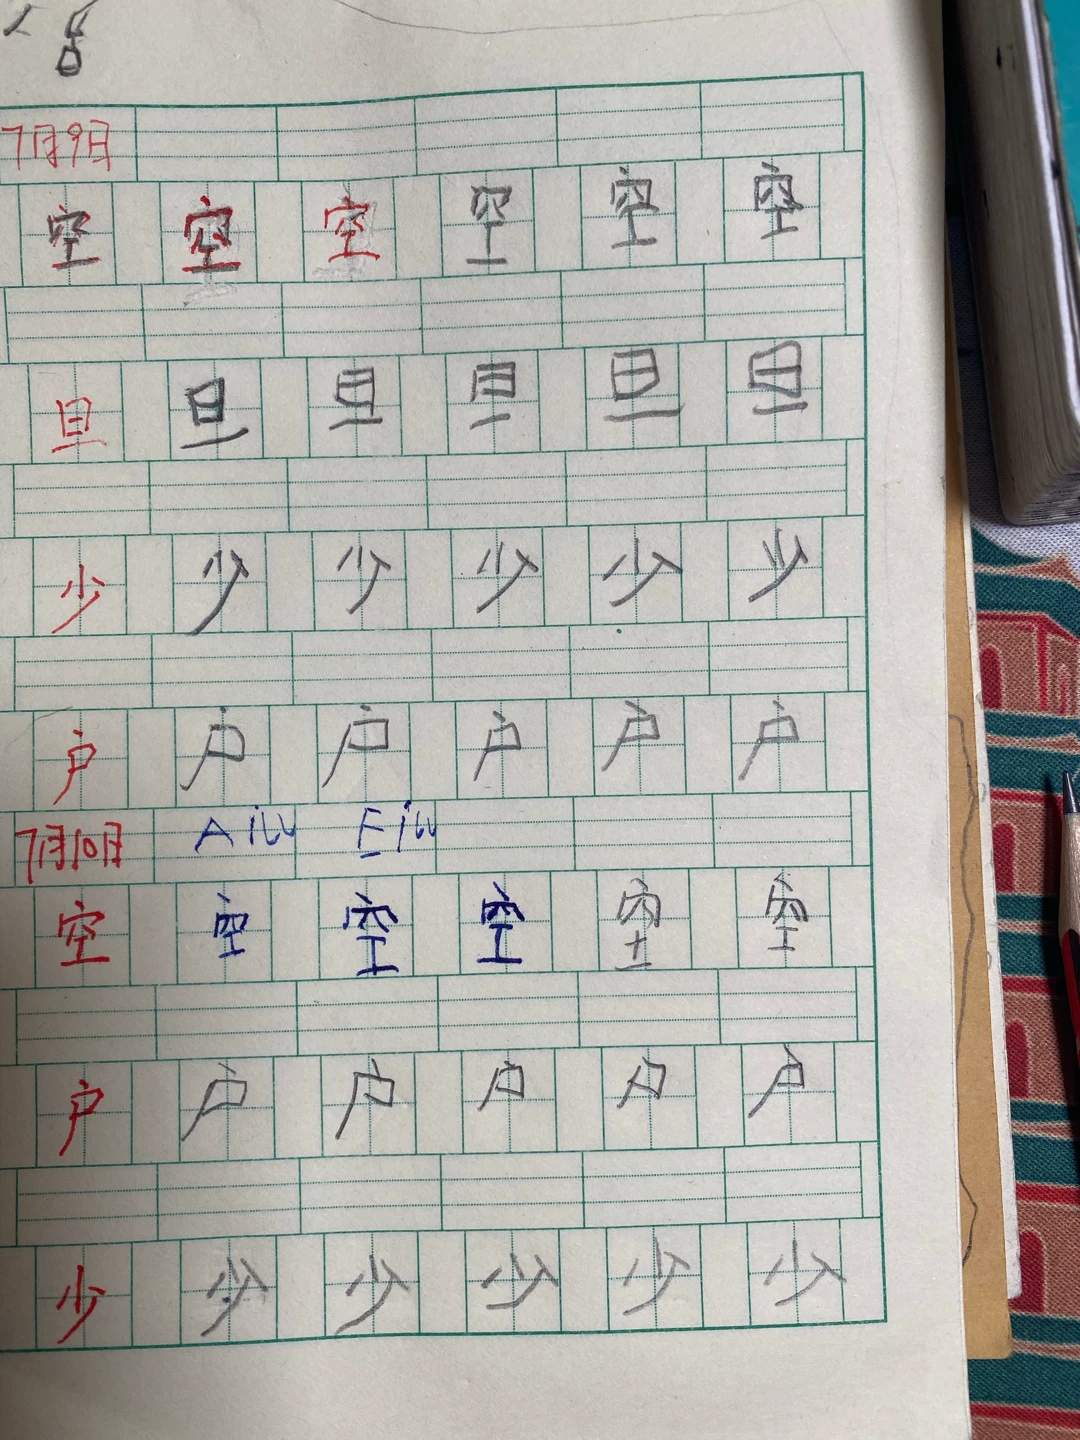 7月9日
空 空 空 空 空 空
旦 旦 旦 旦 旦 旦
少 少 少 少 少 少
户 户 户 户 户 户
7月10日
空 空 空 空 空 空
户 户 户 户 户 户
少 少 少 少 少 少